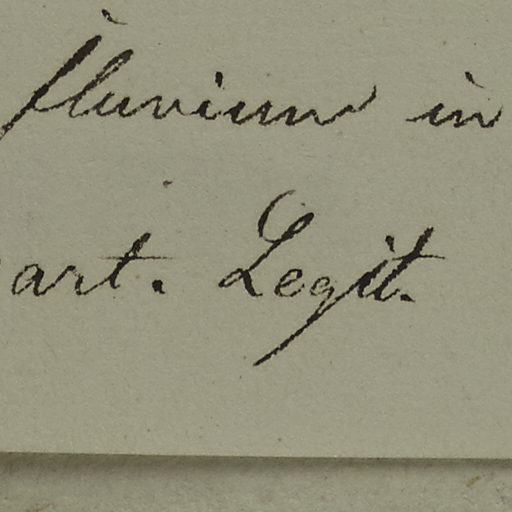 fluvium in
art. Legit.